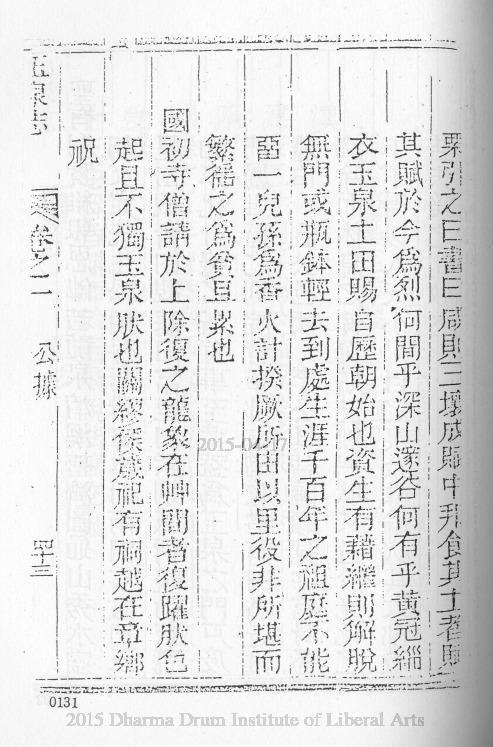 粟引之曰書曰咸則三壤成賦中邦食其土者賦
其賦於今為烈何間乎深山邃谷何有乎黃冠緇
衣玉泉土田賜自歷朝始也資生有藉纔則解脫
無門或瓶鉢輕去到處生涯千百年之祖庭不能
畱一兒孫為香火計揆厥所由以里役非所堪而
繁徭之為貧且累也
國初寺僧請於上除復之龍象在艸間者復躍肰色
起且不獨玉泉肰也關繆侯歲祀有祠越在章鄉
祝
玉泉志
卷之一
公據
四十三
2015-04-17
0131
2015 Dharma Drum Institute of Liberal Arts